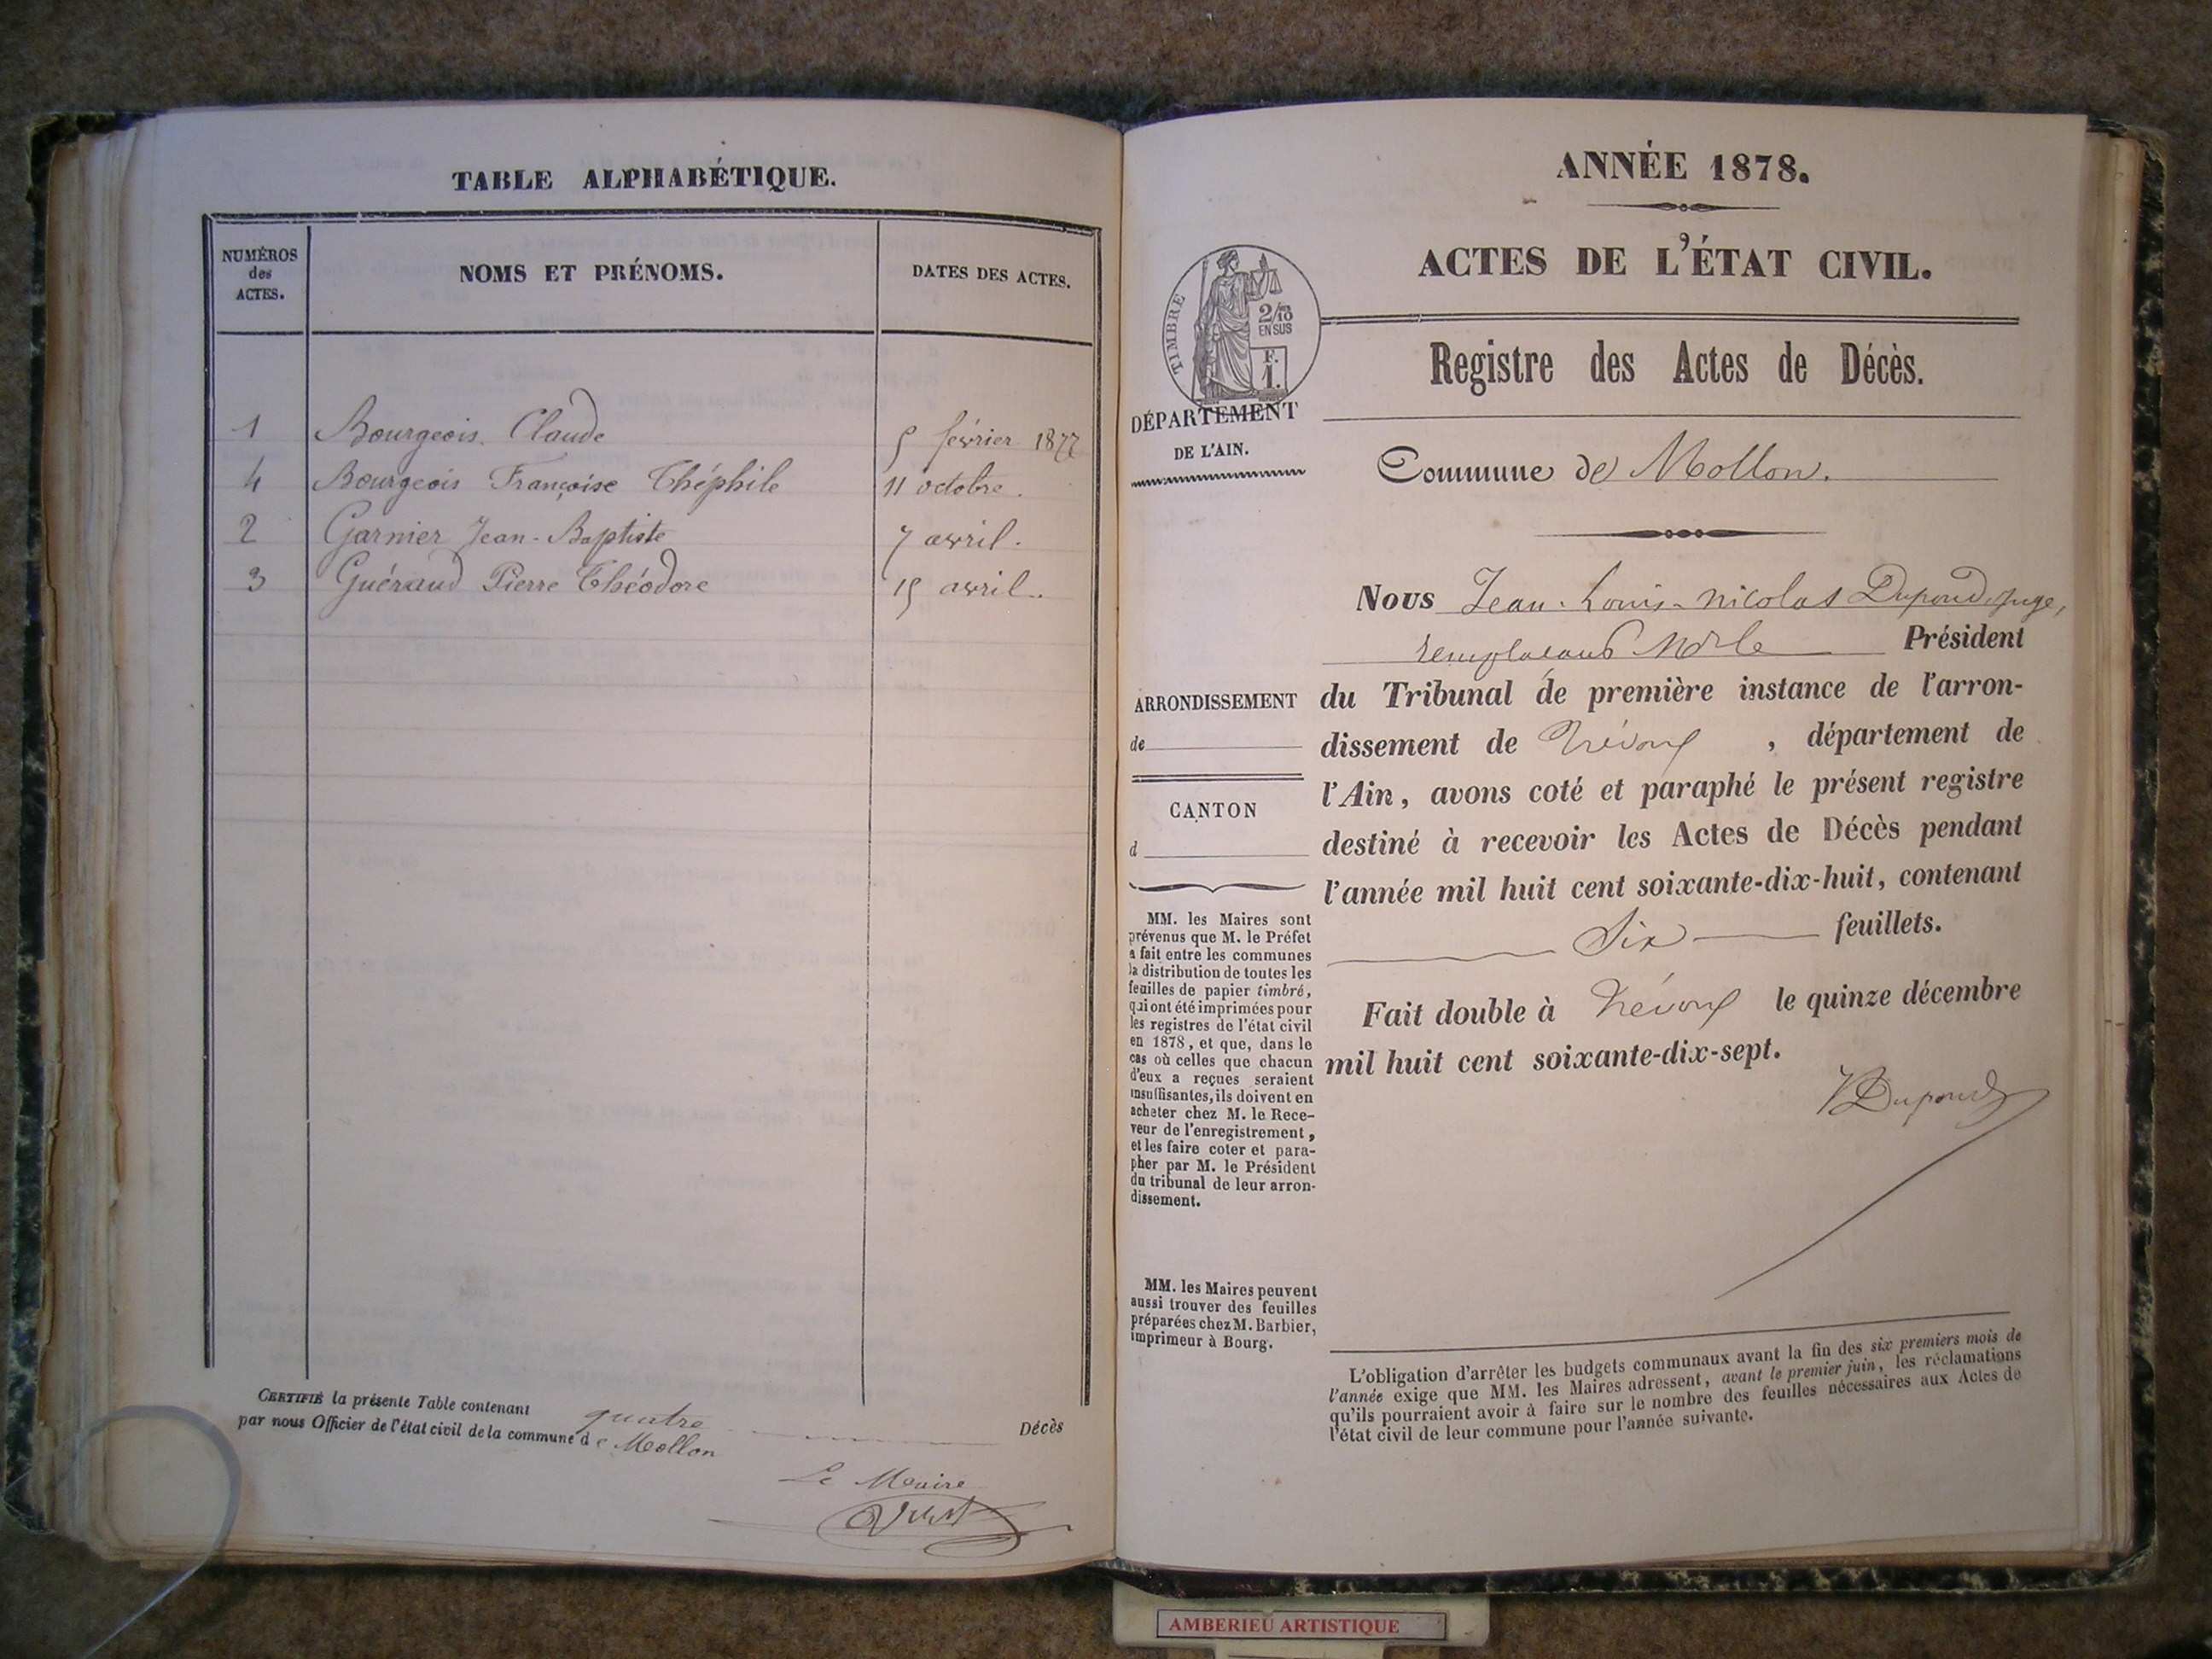 TABLE ALPHABÉTIQUE.
NUMÉROS
des
ACTES.
NOMS ET PRÉNOMS.
DATES DES ACTES.
1 Bourgeois Claude 5 février 1877
4 Bourgeois Françoise Théphile 11 octobre.
2 Garnier Jean-Baptiste 7 avril.
3 Guéraud Pierre Théodore 15 avril.
CERTIFIÉ la présente Table contenant quatre Décès
par nous Officier de l'état civil de la commune de Mollon
Le Maire
ANNÉE 1878.
ACTES DE L'ÉTAT CIVIL.
TIMBRE
2/10
EN SUS
F.
1.
DÉPARTEMENT
DE L'AIN.
Registre des Actes de Décès.
Commune de Mollon.
Nous Jean-Louis-Nicolas Dupond, juge,
remplaçant Mr le Président
du Tribunal de première instance de l'arron-
dissement de Trévoux, département de
l'Ain, avons coté et paraphé le présent registre
destiné à recevoir les Actes de Décès pendant
l'année mil huit cent soixante-dix-huit, contenant
Six feuillets.
Fait double à Trévoux le quinze décembre
mil huit cent soixante-dix-sept.
Dupond
ARRONDISSEMENT
de
CANTON
d
MM. les Maires sont
prévenus que M. le Préfet
a fait entre les communes
la distribution de toutes les
feuilles de papier timbré,
qui ont été imprimées pour
les registres de l'état civil
en 1878, et que, dans le
cas où celles que chacun
d'eux a reçues seraient
insuffisantes, ils doivent en
acheter chez M. le Rece-
veur de l'enregistrement,
et les faire coter et para-
pher par M. le Président
du tribunal de leur arron-
dissement.
MM. les Maires peuvent
aussi trouver des feuilles
préparées chez M. Barbier,
imprimeur à Bourg.
L'obligation d'arrêter les budgets communaux avant la fin des six premiers mois de
l'année exige que MM. les Maires adressent, avant le premier juin, les réclamations
qu'ils pourraient avoir à faire sur le nombre des feuilles nécessaires aux Actes de
l'état civil de leur commune pour l'année suivante.
AMBERIEU ARTISTIQUE